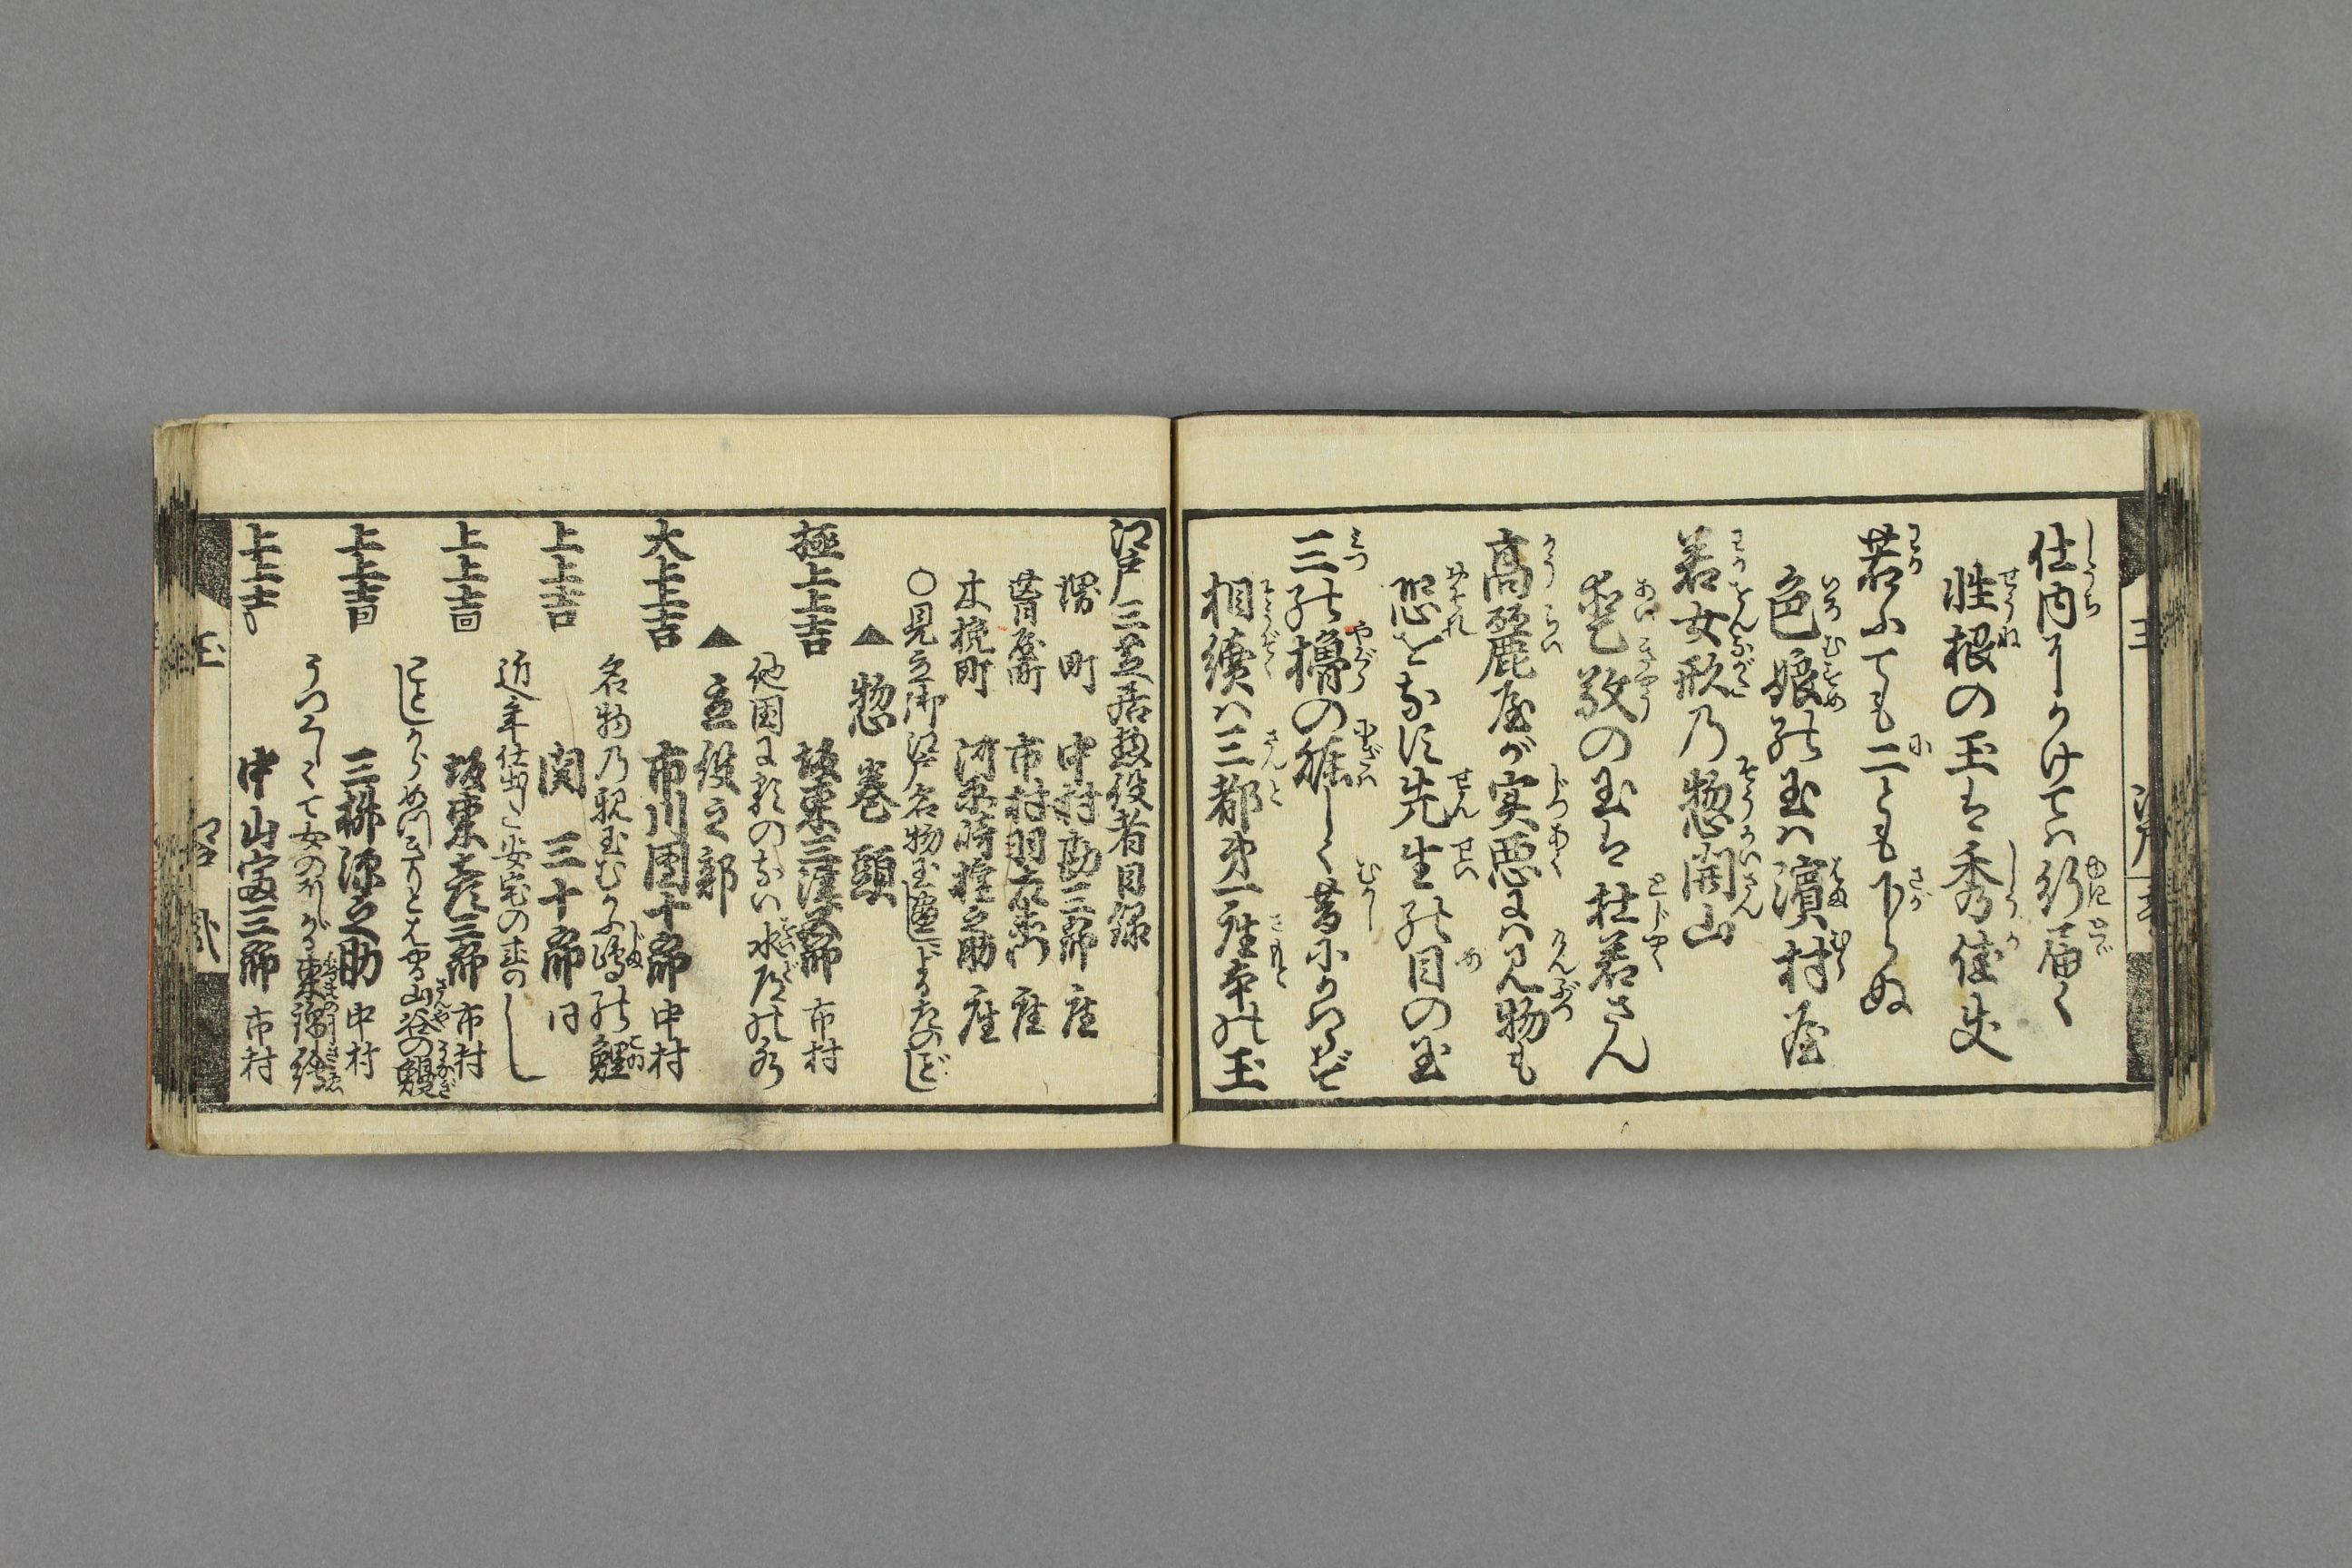 仕内にかけては行届く
性根の玉は秀佳丈
若ふても二とも下らぬ
色娘の玉は濱村屋
若女形乃惣開山
愛敬の玉は杜若さん
高麗屋が実悪には見物も
恐をなす先生の目の玉
三の櫓の賑しく昔にかはらぬ
相續は三都第一座本の玉
江戸三芝居惣役者目録
堺町 中村勘三郎座
葺屋町 市村羽左衛門座
木挽町 河原崎権之助座
○見立御江戸名物玉盡しによる左のごとし
▲惣巻頭
極上上吉 坂東三津五郎 市村
他国に類のない水道の水
▲立役之部
大上上吉 市川団十郎 中村
名物乃親玉むかふ嶋の鯉
上上吉 関三十郎 同
近年仕出した安宅の松のすし
上上吉 坂東彦三郎 市村
山谷の鰻
上上吉 三枡源之助 中村
うつくしくて女の有がる東錦絵
上上吉 中山富三郎 市村